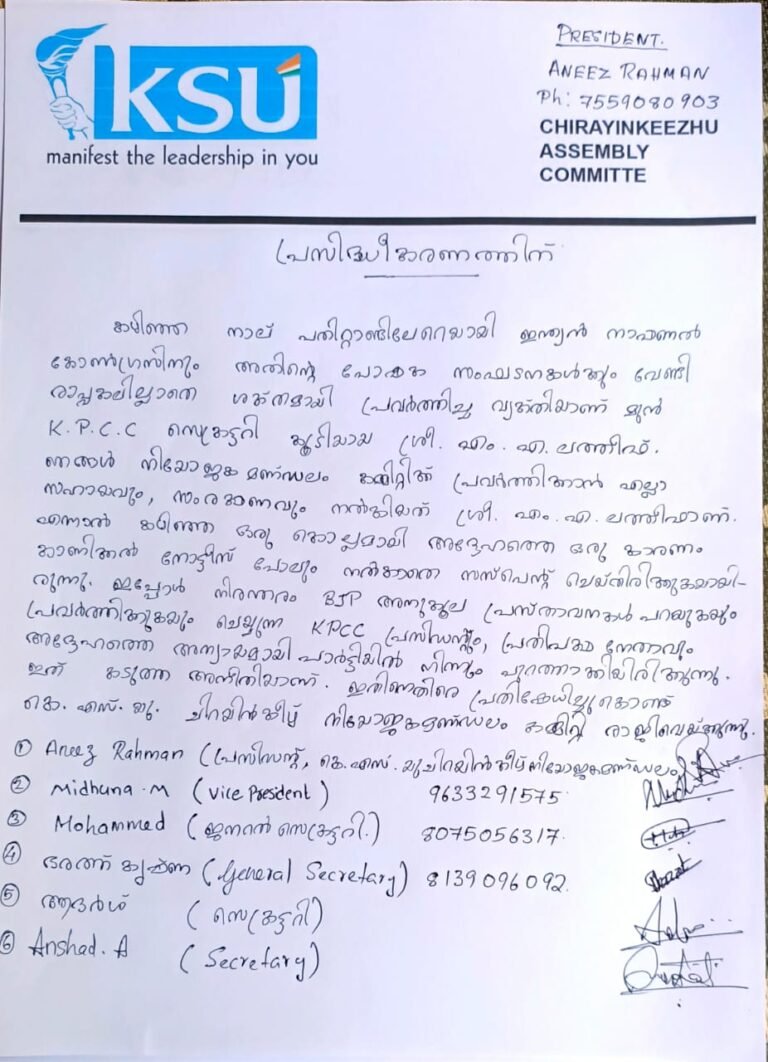 KSU
manifest the leadership in you
PRESIDENT.
ANEEZ RAHMAN
Ph: 7559080903
CHIRAYINKEEZHU
ASSEMBLY
COMMITTE
പ്രസിദ്ധീകരണത്തിന്
കഴിഞ്ഞ നാല് പതിറ്റാണ്ടിലേറെയായി ഇന്ത്യൻ നാഷണൽ
കോൺഗ്രസിനും അതിന്റെ പോഷക സംഘടനകൾക്കും വേണ്ടി
രാപ്പകലില്ലാതെ ശക്തമായി പ്രവർത്തിച്ച വ്യക്തിയാണ് മുൻ
K.P.C.C സെക്രട്ടറി കൂടിയായ ശ്രീ. എം. എ. ലത്തീഫ്.
ഞങ്ങൾ നിയോജക മണ്ഡലം കമ്മിറ്റിക്ക് പ്രവർത്തിക്കാൻ എല്ലാ
സഹായവും, സംരക്ഷണവും നൽകിയത് ശ്രീ. എം. എ. ലത്തീഫാണ്.
എന്നാൽ കഴിഞ്ഞ ഒരു കൊല്ലമായി അദ്ദേഹത്തെ ഒരു കാരണം
കാണിക്കൽ നോട്ടീസ് പോലും നൽകാതെ സസ്പെന്റ് ചെയ്തിരിക്കുകയായി-
രുന്നു. ഇപ്പോൾ നിരന്തരം BJP അനുകൂല പ്രസ്താവനകൾ പറയുകയും
പ്രവർത്തിക്കുകയും ചെയ്യുന്ന KPCC പ്രസിഡന്റും, പ്രതിപക്ഷ നേതാവും
അദ്ദേഹത്തെ അന്യായമായി പാർട്ടിയിൽ നിന്നും പുറത്താക്കിയിരിക്കുന്നു.
ഇത് കടുത്ത അനീതിയാണ്. ഇതിനെതിരെ പ്രതിഷേധിച്ചുകൊണ്ട്
കെ. എസ്. യു. ചിറയിൻകീഴ് നിയോജകമണ്ഡലം കമ്മിറ്റി രാജിവെയ്ക്കുന്നു.
① Aneez Rahman (പ്രസിഡന്റ്, കെ. എസ്. യു ചിറയിൻകീഴ് നിയോജകമണ്ഡലം)
② Midhuna.M (Vice President) 9633291575
③ Mohammed (ജനറൽ സെക്രട്ടറി.) 8075056317.
④ ഭരത്ത് കൃഷ്ണ (General Secretary) 8139096092.
⑤ ആദർശ് (സെക്രട്ടറി)
⑥ Anshad. A (Secretary)